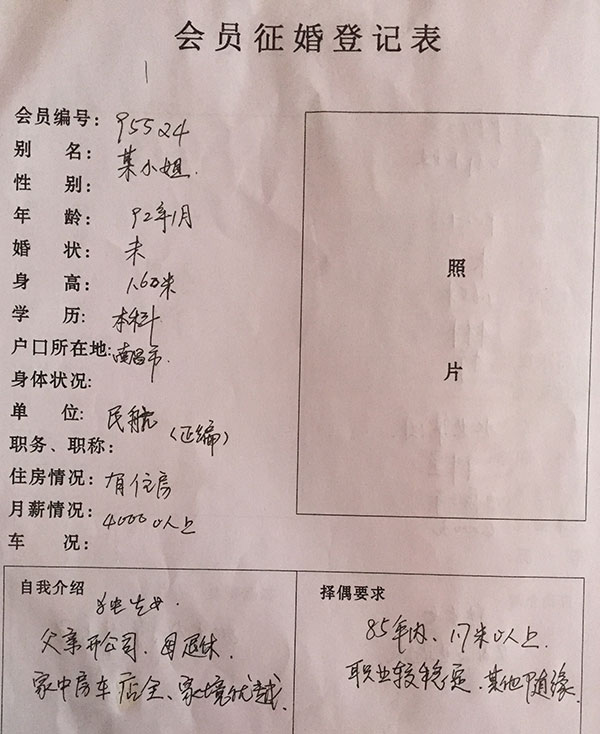 会员征婚登记表
会员编号: 95524
别 名: 某小姐.
性 别:
年 龄: 92年1月
婚 状: 未
身 高: 1.60米
学 历: 本科
户口所在地: 南昌市.
身体状况:
单 位: 民航(正编)
职务、职称:
住房情况: 有住房
月薪情况: 4000以上
车 况:
照
片
自我介绍
独生女.
父亲开公司、母退休.
家中房车店全、家境优越.
择偶要求
85年内、1.7米以上.
职业较稳定、其他随缘.